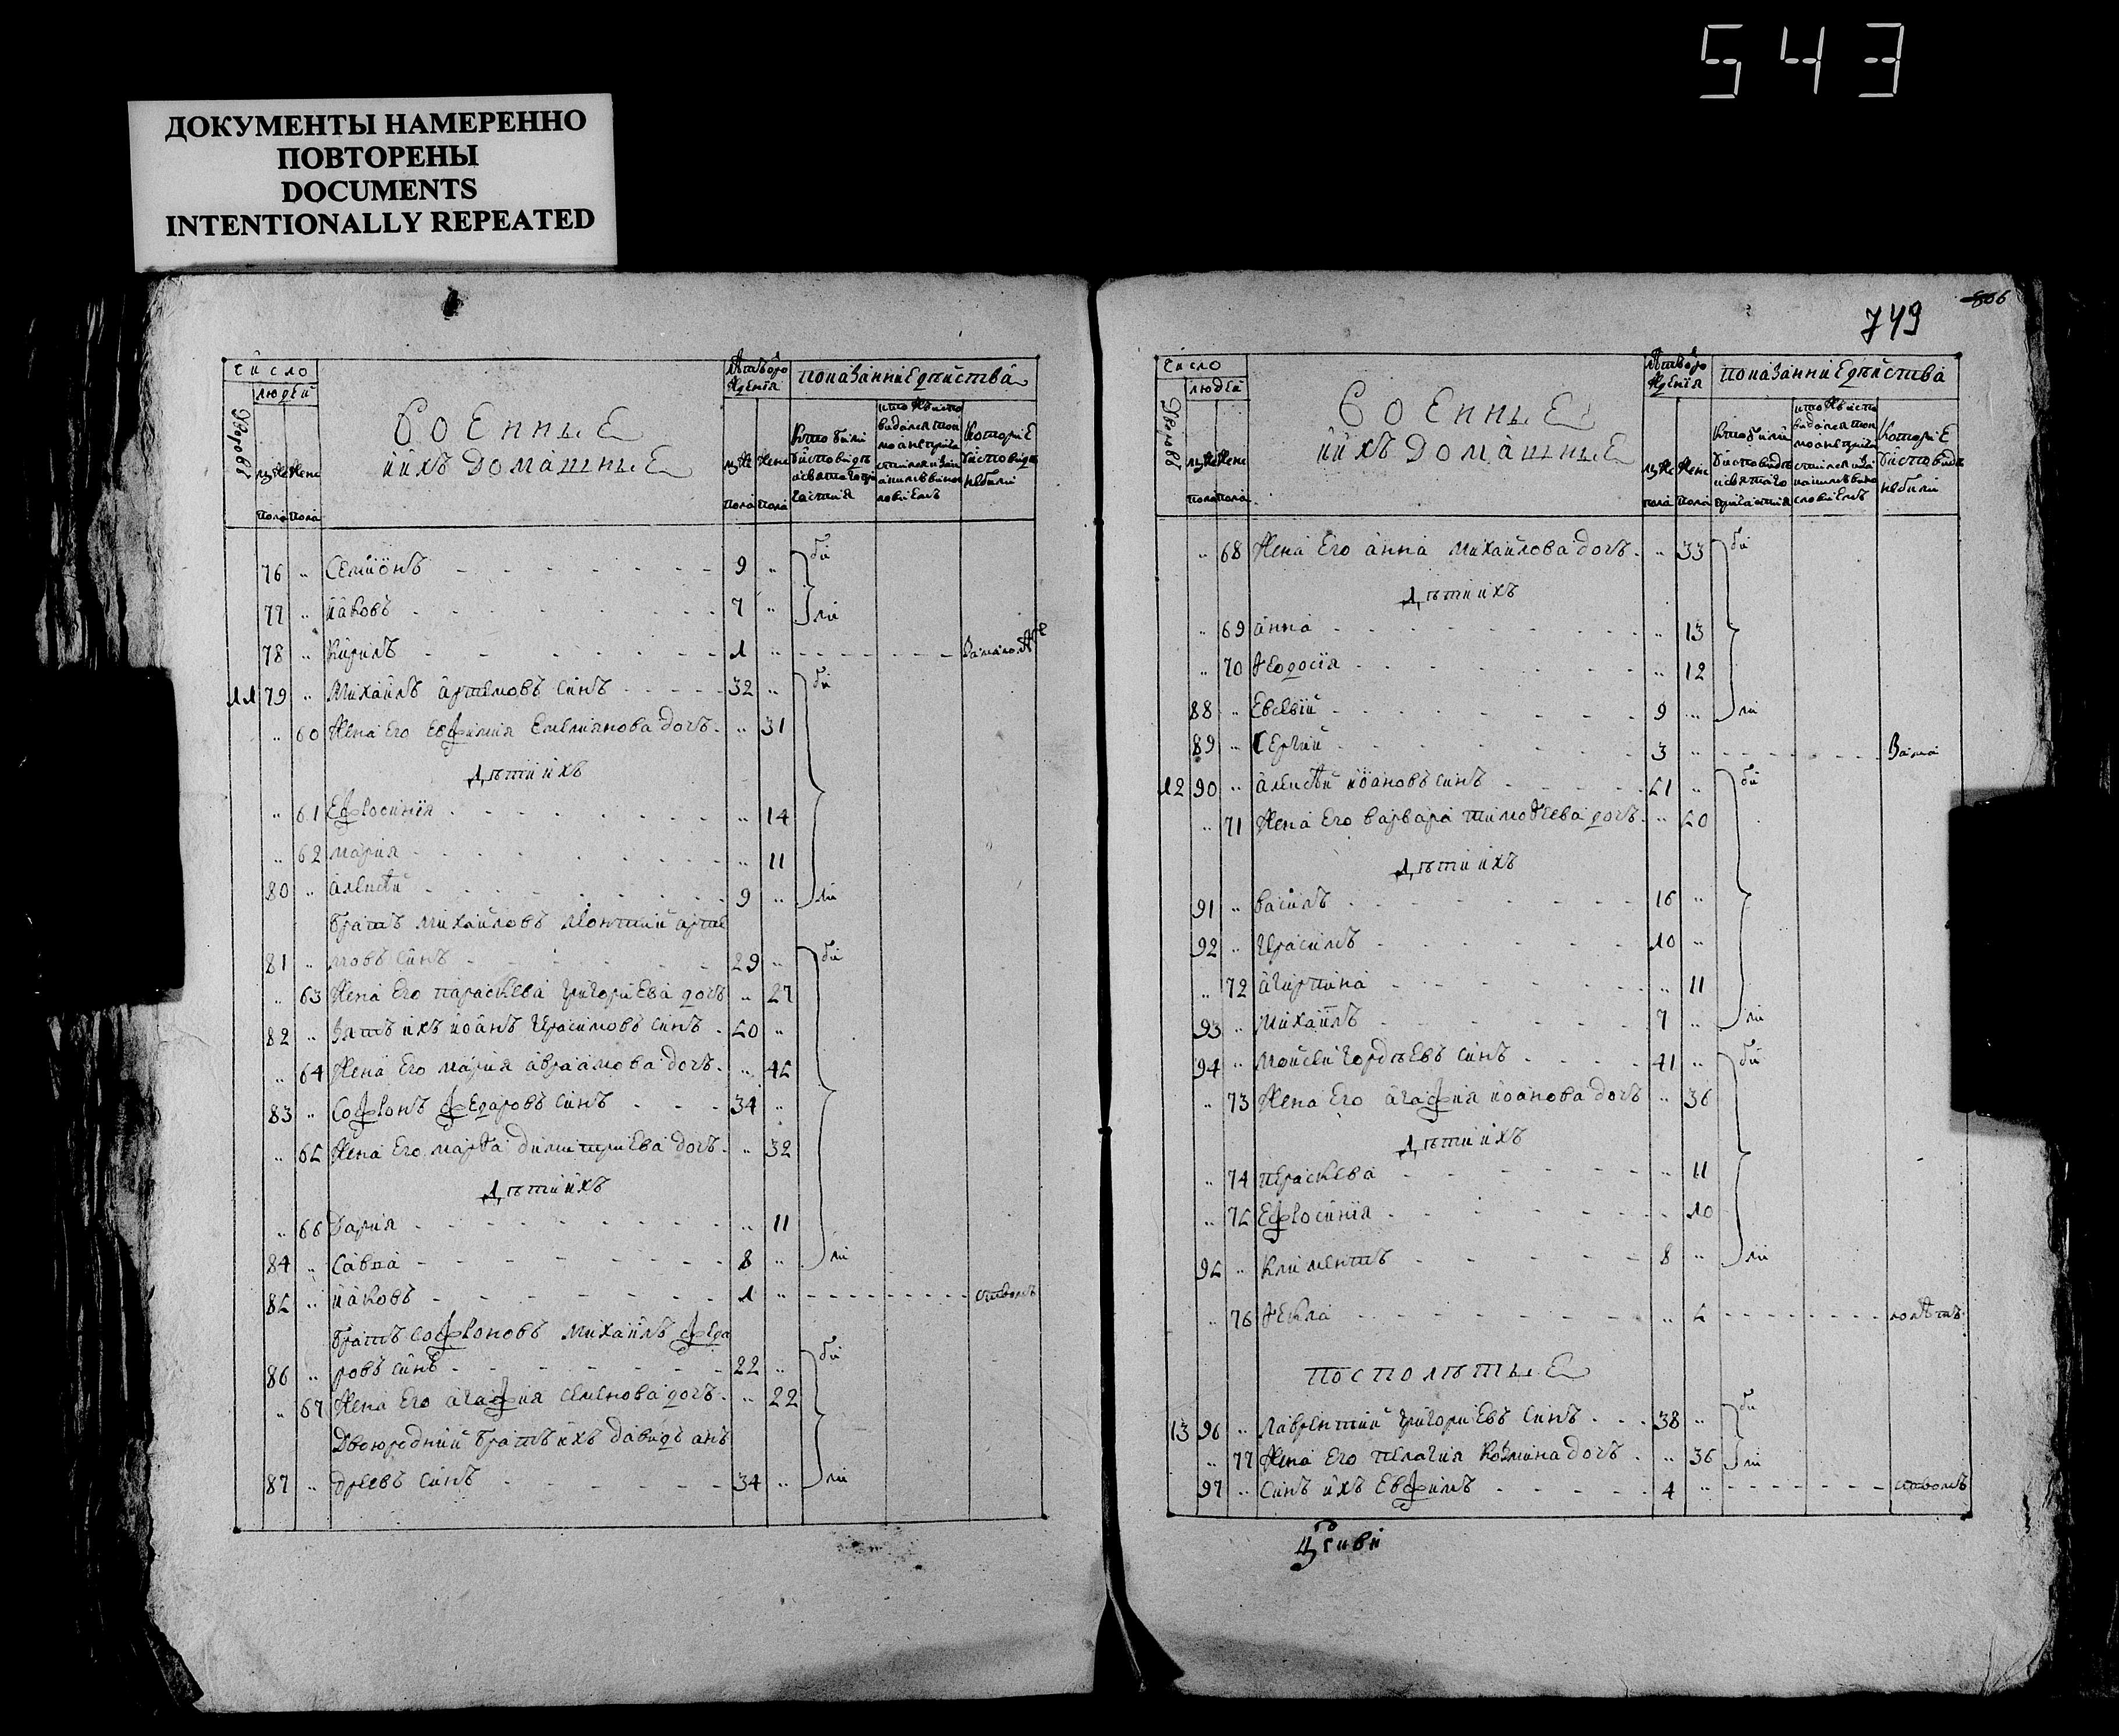 543
ДОКУМЕНТЫ НАМЕРЕННО
ПОВТОРЕНЫ
DOCUMENTS
INTENTIONALLY REPEATED
число
людей
Дворовъ
муже пола
женс пола
Военные
и ихъ домашные
Лѣта от рождения
муже пола
женс пола
показание дѣйства
76 " Семионъ 9 " бы
77 " иаковъ 7 " ли
78 " Кирилъ 1 "
11 79 " Михаилъ артемовъ синъ 32 " бы
" 60 жена Его Евфимия Емелиянова дочъ " 31
дѣти ихъ
" 61 Ефросиния " 14
" 62 мария " 11
80 " алексѣй 9 " ли
братъ михайловъ леонтий арте
81 " мовъ синъ 29 " бы
" 63 жена Его параскева григориева дочъ " 27
82 " зять ихъ иоанъ герасимовъ синъ 50 "
" 64 жена Его мария авраамова дочъ " 45
83 " Софронъ федоровъ синъ 34 "
" 65 жена Его марѳа димитриева дочъ " 32
дѣти ихъ
" 66 дария " 11
84 " Савва 8 " ли
85 " иаковъ 1 "
братъ софроновъ михаилъ федо
86 " ровъ синъ 22 " бы
" 67 жена Его агафия семенова дочъ " 22
двоюродний братъ ихъ давидъ анъ
87 " дреевъ синъ 34 " ли
806
749
число
людей
Дворовъ
муже пола
женс пола
Военные
и ихъ домашные
Лѣта от рождения
муже пола
женс пола
показание дѣйства
" 68 жена Его анна михайлова дочъ " 33 бы
дѣти ихъ
" 69 анна " 13
" 70 Ѳеодосия " 12
88 " Евсевий 9 " ли
89 " Сергий 3 "
12 90 " алексѣй иоановъ синъ 51 " бы
" 71 жена Его варвара тимоѳеева дочъ " 50
дѣти ихъ
91 " василъ 16 "
92 " герасимъ 10 "
" 72 агирпина " 11
93 " михаилъ 7 " ли
94 " моисей гордѣевъ синъ 41 " бы
" 73 жена Его агафия иоанова дочъ " 36
дѣти ихъ
" 74 пераскева " 11
" 75 Ефросиния " 10
95 " климентъ 8 " ли
" 76 Ѳекла " 5
посполитые
13 96 " лаврентий григориевъ синъ 38 " бы
" 77 жена Его пелагия козмина дочъ " 36 ли
97 " синъ ихъ Евфимъ 4 "